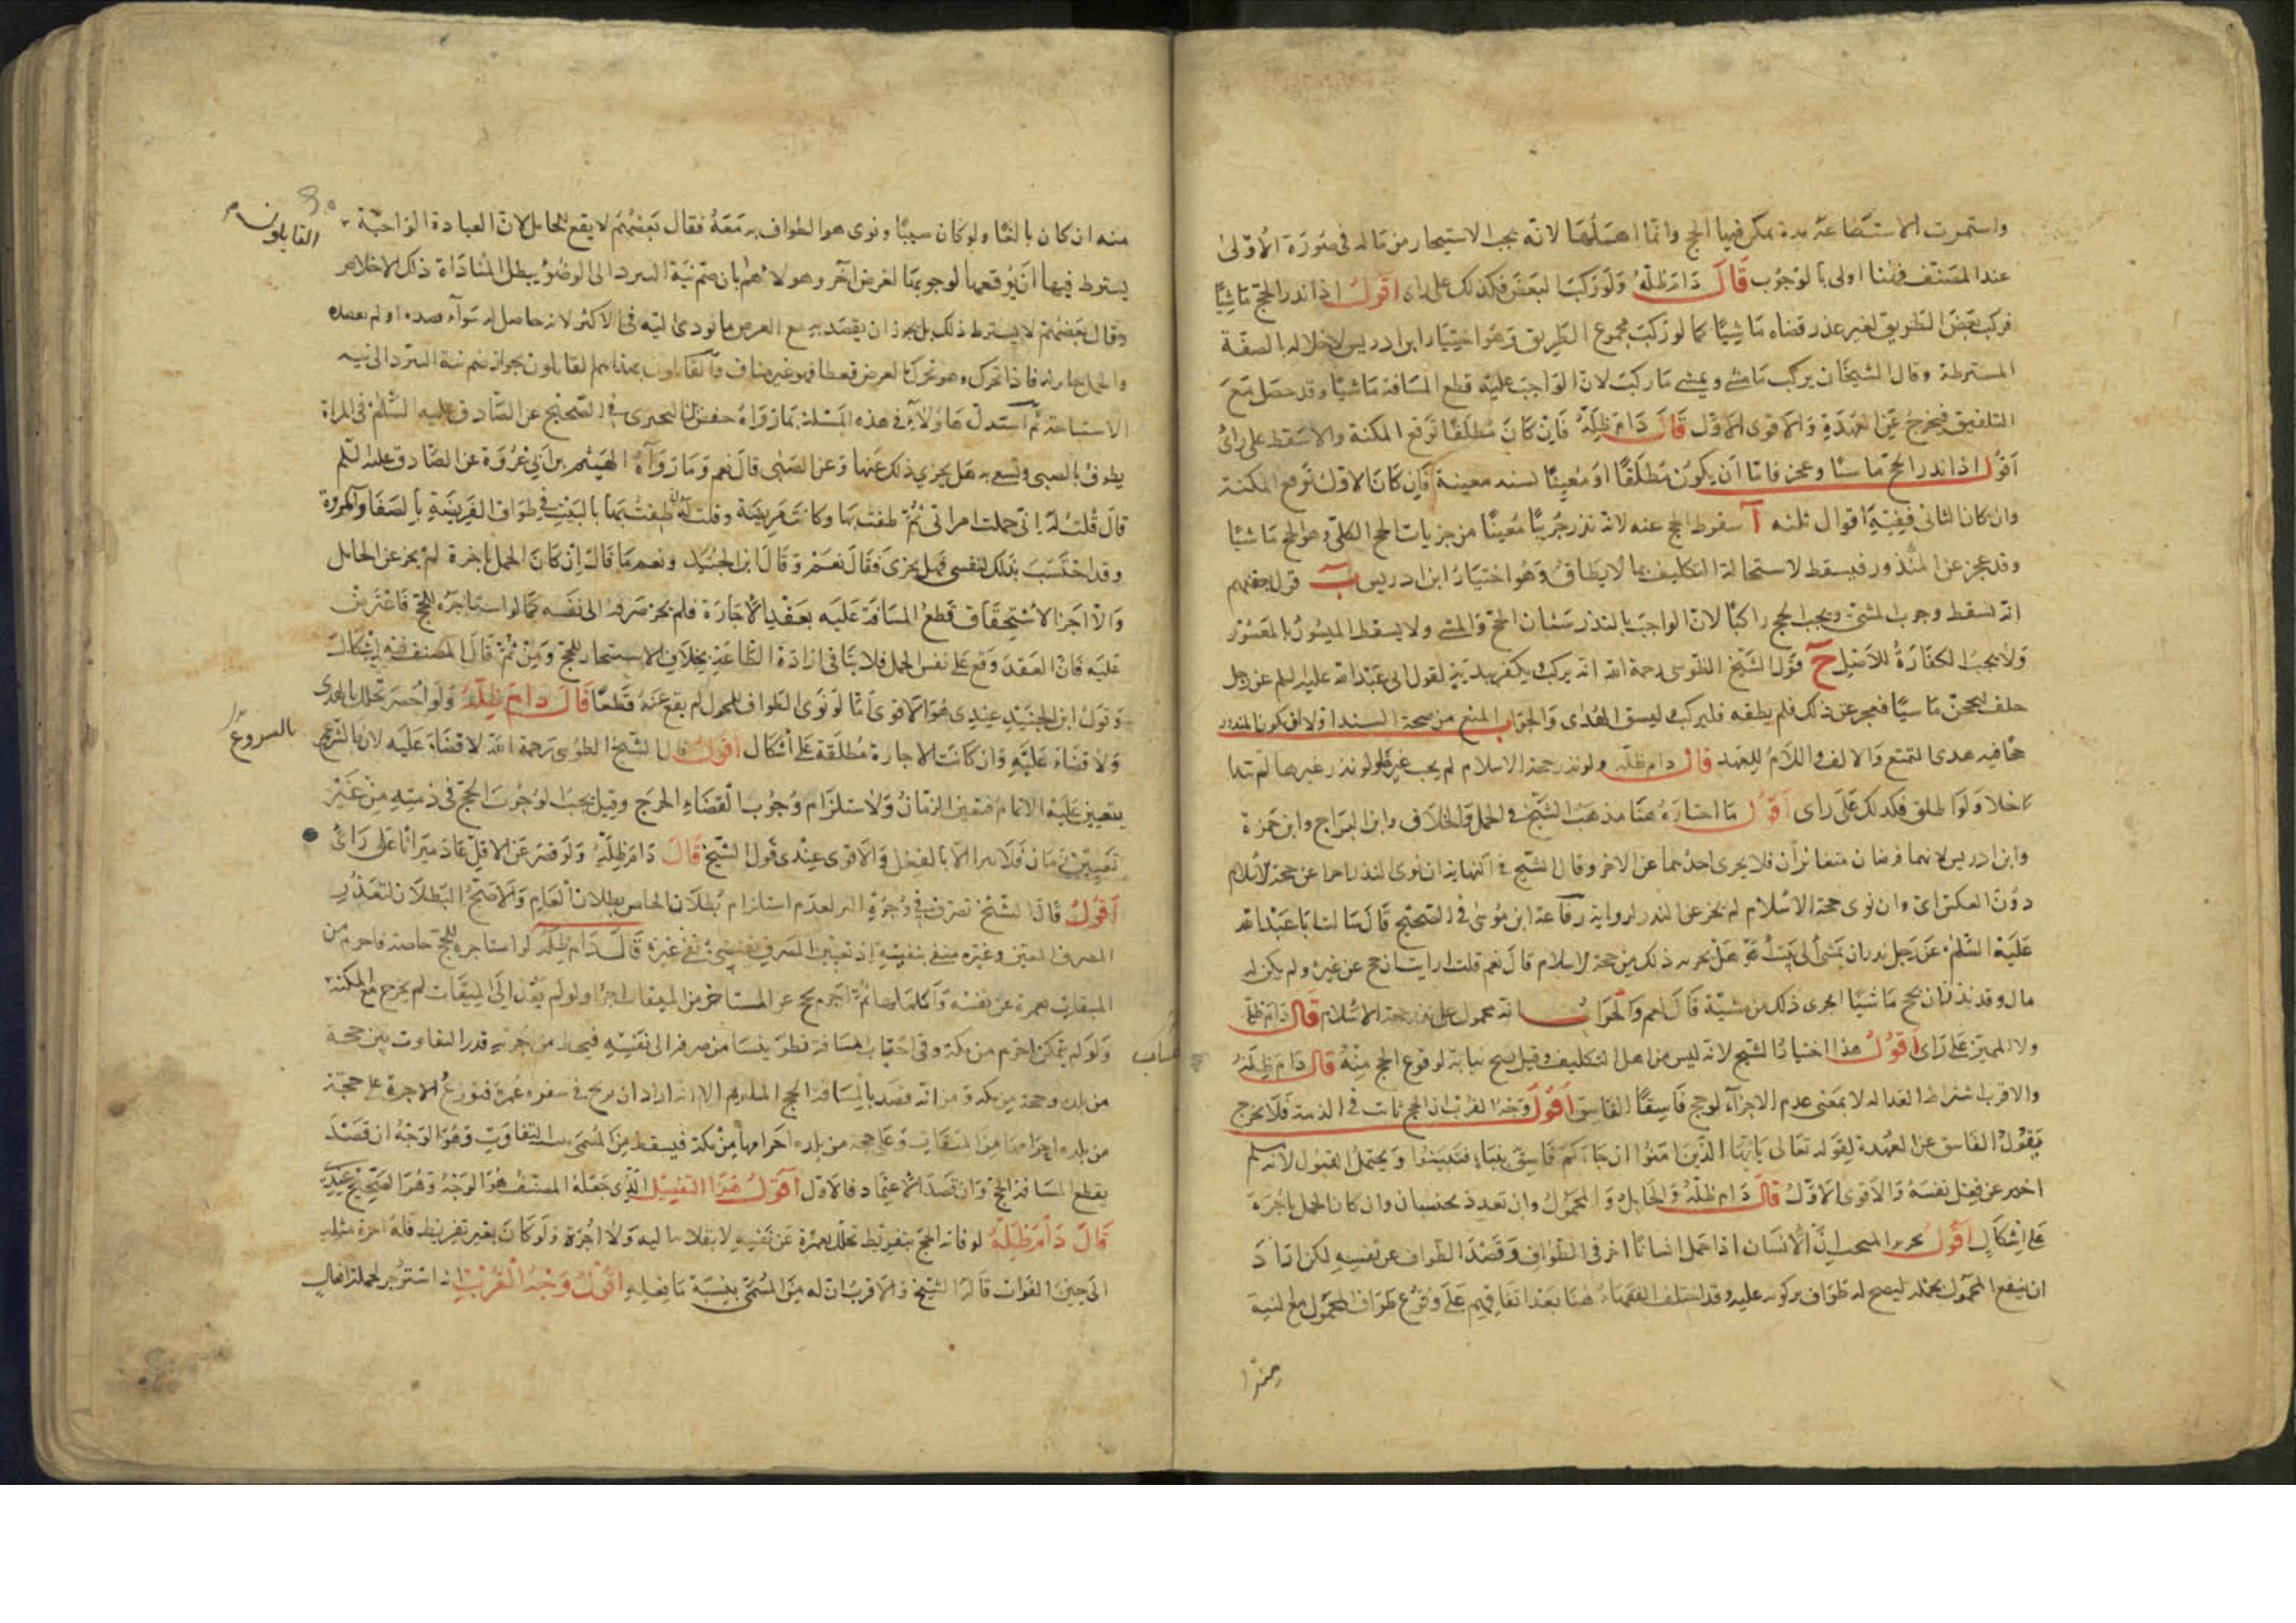 واستمرت الاستطاعة مدة يمكن فيها الحج وانما اهملها لانه يجب الاستيجار من ماله في صورة الاولى
عند المصنف فهنا اولى بالوجوب قال دام ظله ولو ركب البعض فكذلك على راى اقول اذا نذر الحج ماشيا
فركب بعض الطريق لغير عذر قضاه ماشيا كما لو ركب مجموع الطريق وهو اختيار ابن ادريس لاخلاله بالصفة
المشترطة وقال الشيخان يركب ما مشى ويمشى ما ركب لان الواجب عليه قطع المسافة ماشيا وقد حصل مع
التلفيق فيخرج عن العهدة والاقوى الاول قال دام ظله فان كان مطلقا توقع المكنة والا سقط على راى
اقول اذا نذر الحج ماشيا وعجز فاما ان يكون مطلقا او معينا لسنه معينة فان كان الاول توقع المكنة
وان كان الثانى ففيه اقوال ثلثه آ سقوط الحج عنه لانه نذر جزئيا معينا من جزيات الحج الكلى وهو الحج ماشيا
وقد عجز عن المنذور فيسقط لاستحالة التكليف بما لا يطاق وهو اختيار ابن ادريس ب قول بعضهم
انه يسقط وجوب المشى ويجب الحج راكبا لان الواجب بالنذر شيئان الحج والمشى ولا يسقط الميسور بالمعسور
ولا يجب الكفارة للاصل ج قول الشيخ الطوسى رحمة الله انه يركب ويكفر ببدنة لقول ابى عبد الله عليه السلم عن رجل
حلف ليحجن ماشيا فعجز عن ذلك فلم يطقه فليركب وليسق الهدى والجواب المنع من صحة السند اولا او يكون المنذور
حجا فيه هدى التمتع والالف واللام للعهد قال دام ظله ولو نذر حجة الاسلام لم يجب غيرها ولو نذر غيرها لم تتدا
خلا ولو اطلق فكذلك على راى اقول ما اختاره هنا مذهب الشيخ في الجمل والخلاف وابن البراج وابن حمزة
وابن ادريس لانهما فرضان متغائران فلا يجرى احدهما عن الاخر وقال الشيخ في النهاية ان نوى النذر اجزا عن حجة الاسلام
دون العكس اى وان نوى حجة الاسلام لم يجز عن النذر لرواية رفاعة ابن موسى في الصحيح قال سالت ابا عبد الله
عليه السلم عن رجل نذر ان يمشى الى بيت الله هل يجزيه ذلك من حجة الاسلام قال نعم قلت ارايت ان حج عن غيره ولم يكن له
مال وقد نذر ان يحج ماشيا ايجزى ذلك من مشيه قال نعم والجواب انه محمول على نذر حجة الاسلام قال دام ظله
ولا المميز على راى اقول هذا اختيار الشيخ لانه ليس من اهل التكليف وقيل يصح نيابته لوقوع الحج منه قال دام ظله
والاقرب اشتراط العداله لا بمعنى عدم الاجزاء لو حج فاسقا الفاسق اقول وجه القرب ان الحج ثابت في الذمة فلا يخرج
بقول الفاسق عن العهدة لقوله تعالى يايها الذين امنوا ان جاءكم فاسق بنباء فتبينوا ويحتمل القبول لانه مسلم
اخبر عن فعل نفسه والاقوى الاول قال دام ظله والحامل والمحمول وان تعدد يحتسبان وان كان الحمل باجرة
على اشكال اقول تحرير المبحث ان الانسان اذا حمل انسانا اخر في الطواف وقصد الطواف عن نفسه لكن اراد
ان ينفع المحمول بحمله ليصح له طواف بركوبه عليه وقد اختلف الفقهاء هنا بعد اتفاقهم على وقوع طواف المحمول مع النية
منه ان كان بالغا ولو كان صبيا ونوى هو الطواف به معه فقال بعضهم لا يقع للحامل لان العبادة الواجبة
يشترط فيها ان يوقعها لوجوبها لا لغرض آخر وهولاء هم بان ضم نية التبرد الى الوضوء يبطل لمنافاة ذلك الاخلاص
وقال بعضهم لا يشترط ذلك بل يجوز ان يقصد به مع الغرض ما يودى اليه في الاكثر لانه حاصل له سواء قصده او لم يقصده
فاذا تحرك وهو تحرك لغرض فهو غير مناف والقائلون بهذا هم القائلون بجواز ضم نية التبرد الى نيه
الاستباحة ثم استدل هاولاء في هذه المسئلة بما رواه حفص بن البخترى في الصحيح عن الصادق عليه السلم في المراة
يطوف بالصبى وتسعى به هل يجزى ذلك عنها وعن الصبى قال نعم وما رواه الهيثم بن ابى عروة عن الصادق عليه السلم
قال قلت له انى حملت امراتى ثم طفت بها وكانت مريضة وقلت له انى طفت بها بالبيت في طواف الفريضة بالصفا والمروة
وقد احتسبت بذلك لنفسى فهل يجزى فقال نعم وقال ابن الجنيد ونعم ما قال ان كان الحمل باجرة لم يجز عن الحامل
والا اجزا لاستحقاق قطع المسافة عليه بعقد الاجارة فلم يجز صرفه الى نفسه كما لو استاجره للحج فاعترض
عليه فان العقد وقع على نفس الحمل فلا ينافى ارادة الطاعة بخلاف الاستيجار للحج ومن ثم قال المصنف فيه اشكال
وقول ابن الجنيد عندى هو الاقوى اما لو نوى الطواف للمحمول لم يقع عنه قطعا قال دام ظله ولو احصر تحلل بالهدى
ولا قضاء عليه وان كانت الاجارة مطلقة على اشكال اقول قال الشيخ الطوسى رحمة الله لا قضاء عليه لان بالشروع
يتعين عليه الاتمام فتعين الزمان ولاستلزام وجوب القضاء الحرج وقيل يجب لوجوب الحج في ذمته من غير
تعيين زمان فلا يبرا الا بالفعل والاقوى عندى قول الشيخ قال دام ظله ولو قصر عن الاقل عاد ميراثا على راى
اقول قال الشيخ تصرف في وجوه البر لعدم استلزام بطلان الخاص بطلان العام والاصح البطلان لتعذر
المصرف المعين وغيره منفى بنفيه اذ تعيين المصرف يقتضى نفى غيره قال دام ظله لو استاجره للحج خاصة فاحرم من
الميقات بعمرة عن نفسه واكملها ثم احرم بحج عن المستاجر من الميقات اجزا ولو لم يعد الى الميقات لم يجزء مع المكنة
ولو لم يتمكن احرم من مكة وفى احتساب المسافة نظر ينشا من صرفها الى نفسه فيحط من اجرته قدر التفاوت بين حجة
من بلده وحجة من مكة ومن انه قصد بالمسافة الحج الملتزم الا انه اراد ان يربح في سفره عمرة فتوزع الاجرة على حجة
من بلده احرامها من الميقات وعلى حجة من بلده احرامها من مكة فيسقط من المسمى التفاوت وهو الوجه ان قصد
بقطع المسافة الحج وان قصد الاعتماد فالاول اقول هذا التفصيل الذى جعله المصنف هو الوجه وهو الصحيح عندى
قال دام ظله لو فاته الحج بتفريط تحلل بعمرة عن نفسه ولا اجرة ولو كان بغير تفريط فله اجرة مثله
الى حين الفوات قال الشيخ والاقرب ان له من المسمى بنسبة ما فعله اقول وجه القرب انه استوجر لجملة افعال
القائلون
بالشروع